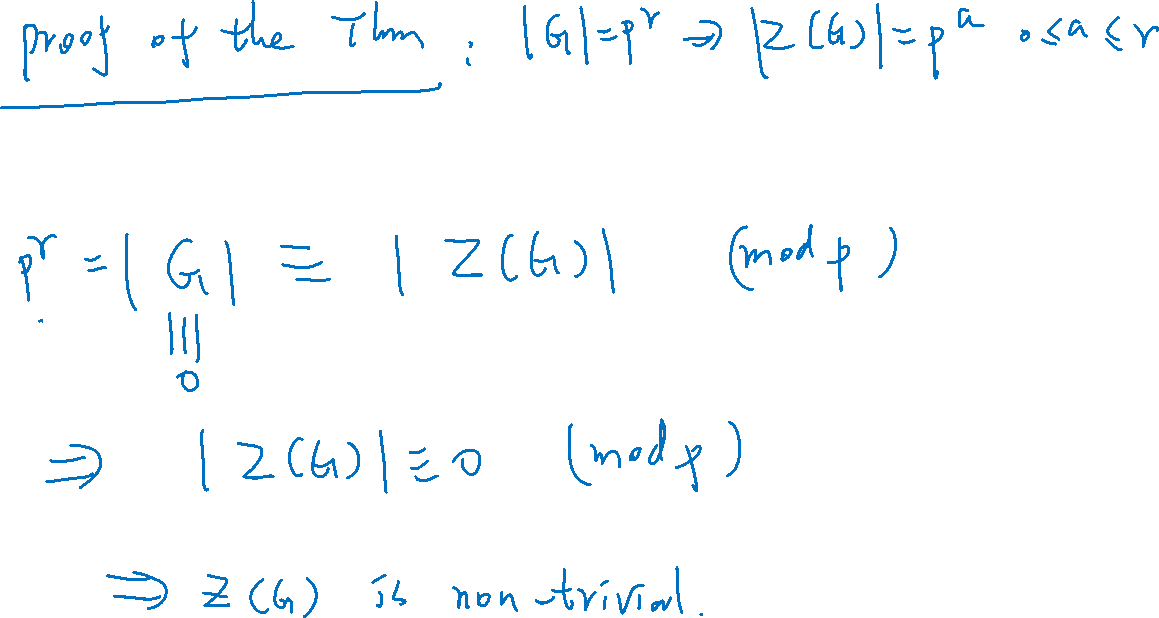 proof of the Thm : |G|=p^r ⇒ |Z(G)|=p^a 0≤a≤r
p^r = |G| ≡ |Z(G)| (mod p)
|||
0
⇒ |Z(G)| ≡ 0 (mod p)
⇒ Z(G) is non-trivial.